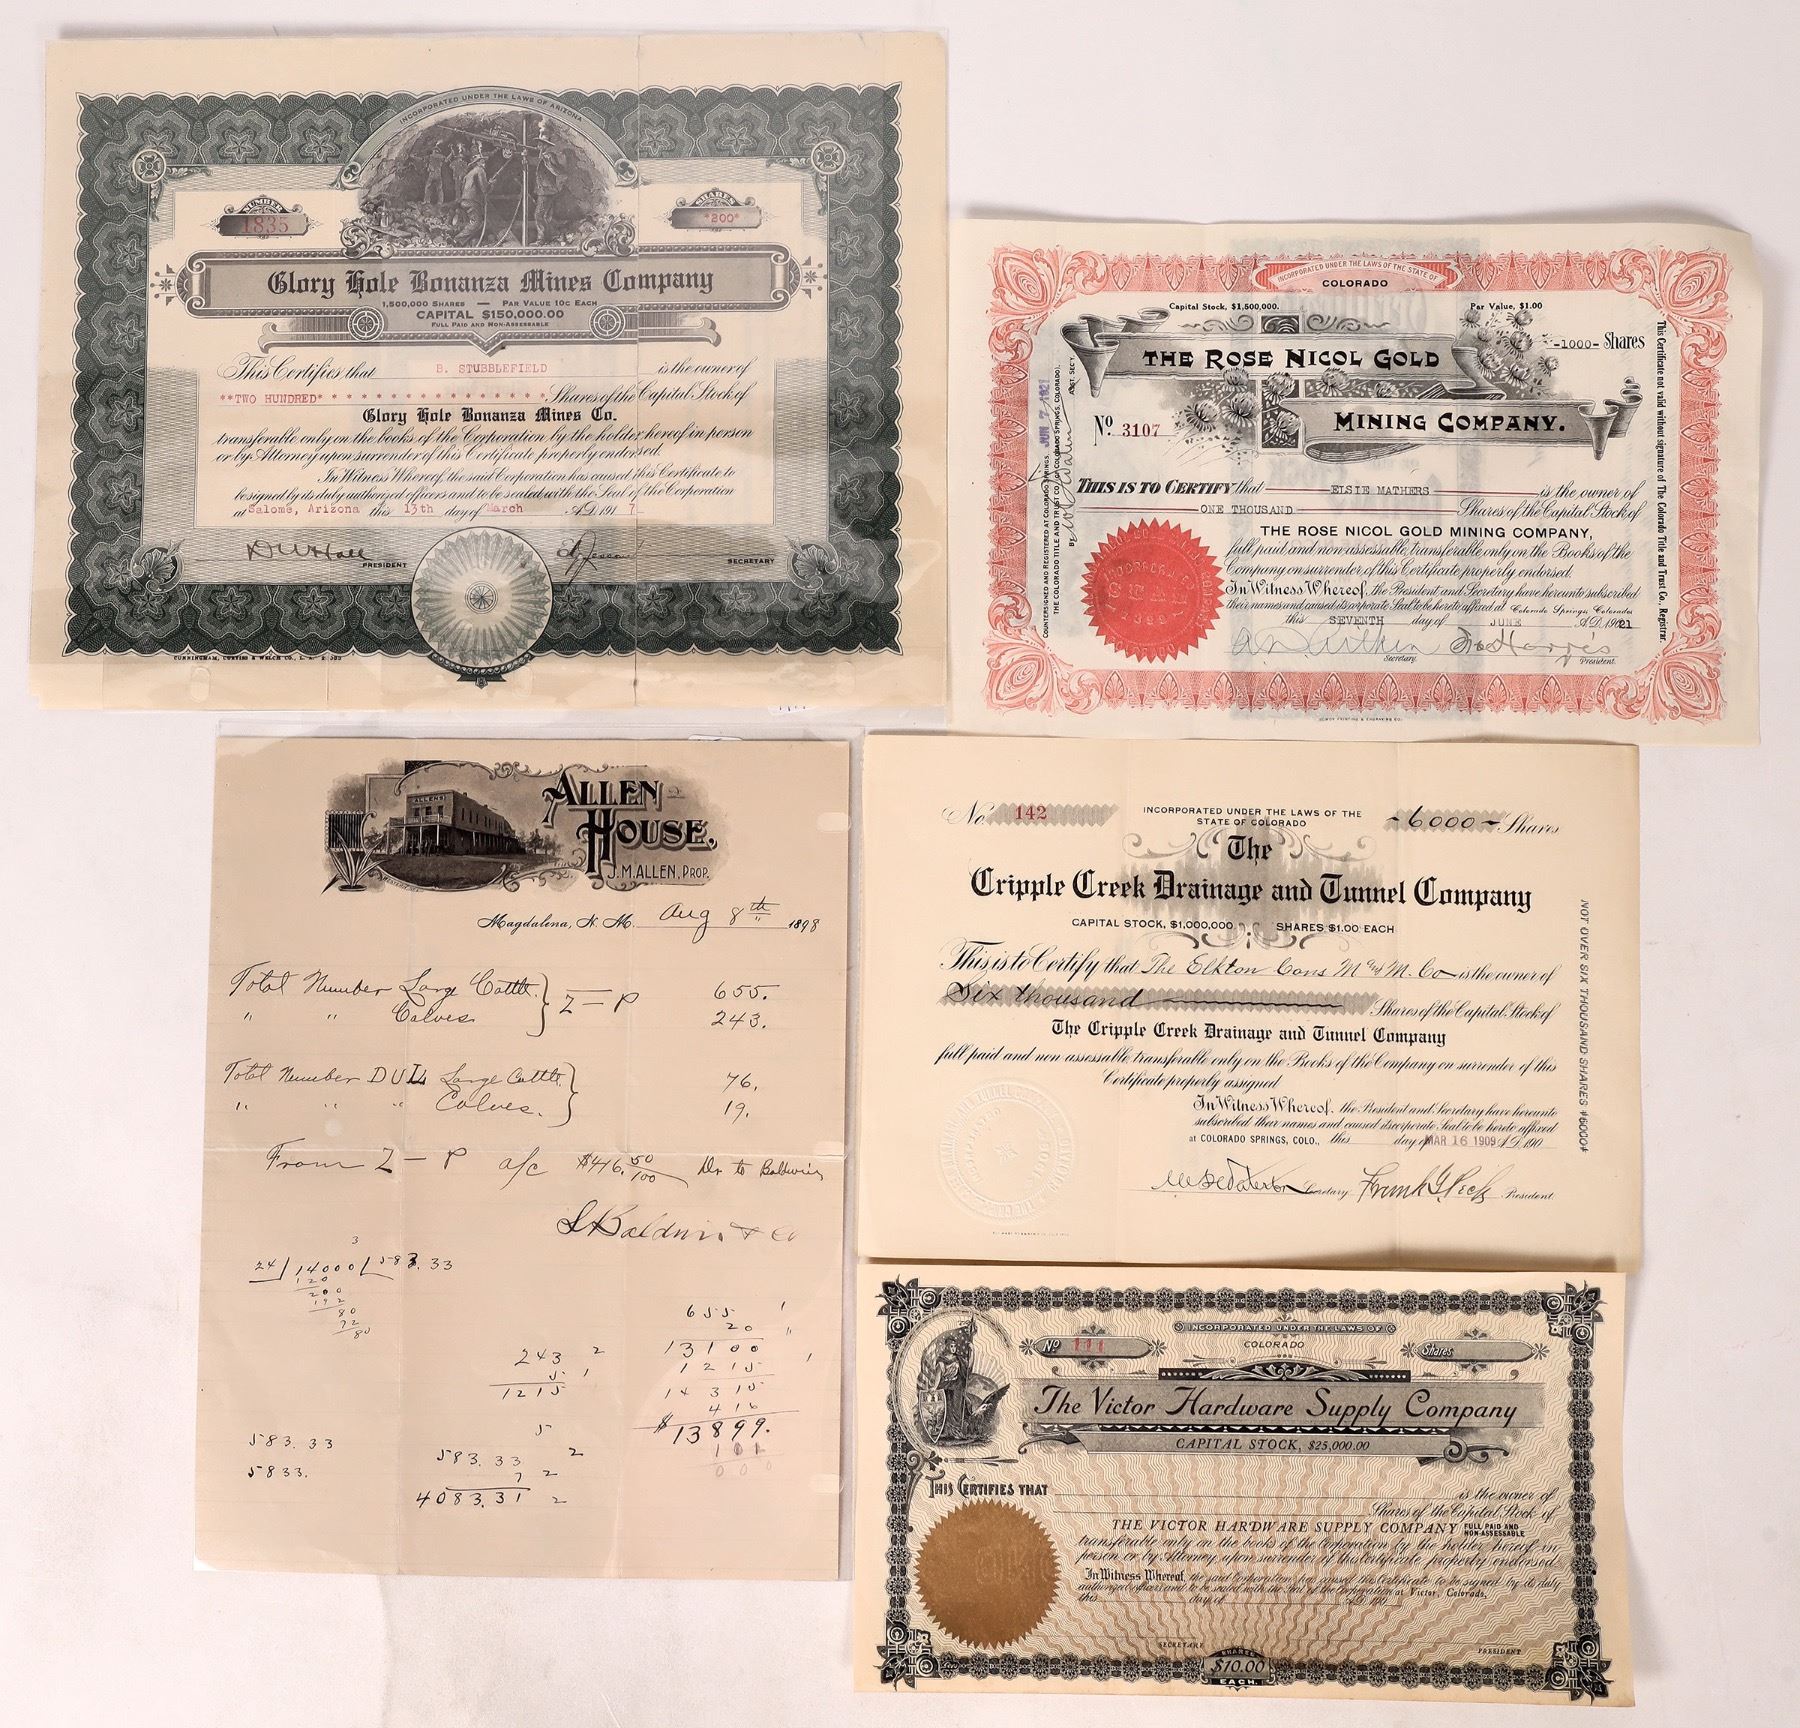 INCORPORATED UNDER THE LAWS OF ARIZONA
NUMBER
1835
SHARES
*200*
Glory Hole Bonanza Mines Company
1,500,000 SHARES — PAR VALUE 10C EACH
CAPITAL $150,000.00
FULL PAID AND NON-ASSESSABLE
This Certifies that B. STUBBLEFIELD is the owner of
**TWO HUNDRED* * * * * * * * * * * * * * * * Shares of the Capital Stock of
Glory Hole Bonanza Mines Co.
transferable only on the books of the Corporation by the holder hereof in person
or by Attorney upon surrender of this Certificate properly endorsed.
In Witness Whereof, the said Corporation has caused this Certificate to
be signed by its duly authorized officers and to be sealed with the Seal of the Corporation
at Salome, Arizona this 13th day of March A.D. 191 7.
PRESIDENT
SECRETARY
CUNNINGHAM, CURTISS & WELCH CO., L. A.
INCORPORATED UNDER THE LAWS OF THE STATE OF
COLORADO
Capital Stock, $1,500,000.
Par Value, $1.00
-1000- Shares
THE ROSE NICOL GOLD
MINING COMPANY.
No. 3107
THIS IS TO CERTIFY that ELSIE MATHERS is the owner of
ONE THOUSAND Shares of the Capital Stock of
THE ROSE NICOL GOLD MINING COMPANY,
full paid and non-assessable, transferable only on the Books of the
Company on surrender of this Certificate properly endorsed.
In Witness Whereof, the President and Secretary have hereunto subscribed
their names and caused its corporate Seal to be hereto affixed at Colorado Springs, Colorado
this SEVENTH day of JUNE A.D. 1921
Secretary.
President.
COUNTERSIGNED AND REGISTERED AT COLORADO SPRINGS, JUN 7 1921
THE COLORADO TITLE AND TRUST CO. OF COLORADO SPRINGS, COLORADO.
BY ASST. SEC'Y.
This Certificate not valid without signature of The Colorado Title and Trust Co., Registrar.
INCORPORATED
SEAL
ALLEN HOUSE.
ALLENS
J. M. ALLEN, PROP.
Magdalena, N. M. Aug 8th 1898
Total Number Large Cattle } Z-P 655.
" " Calves } 243.
Total Number DUL Large Cattle } 76.
" " " Calves. } 19.
From Z-P a/c $416.50/100 Dr to Baldwin
Baldwin & Co
3
24 / 14000 / 583.33
120
200
192
80
72
80
655
20
13100
1215
14315
416
$13899.
243
5
1215
583.33
5833.
583.33
7
4083.31
No. 142
INCORPORATED UNDER THE LAWS OF THE
STATE OF COLORADO
-6000- Shares
The
Cripple Creek Drainage and Tunnel Company
CAPITAL STOCK, $1,000,000. SHARES $1.00 EACH
This is to Certify that The Elkton Cons M and M. Co is the owner of
Six thousand Shares of the Capital Stock of
The Cripple Creek Drainage and Tunnel Company
full paid and non assessable, transferable only on the Books of the Company on surrender of this
Certificate properly assigned
In Witness Whereof, the President and Secretary have hereunto
subscribed their names and caused its corporate Seal to be hereto affixed
at COLORADO SPRINGS, COLO., this day of MAR 16 1909 A.D. 190
Secretary Frank G. Peck President
NOT OVER SIX THOUSAND SHARES #6000#
INCORPORATED UNDER THE LAWS OF
COLORADO
No 111
Shares
The Victor Hardware Supply Company
CAPITAL STOCK, $25,000.00
THIS CERTIFIES THAT is the owner of
Shares of the Capital Stock of
THE VICTOR HARDWARE SUPPLY COMPANY FULL PAID AND NON-ASSESSABLE
transferable only on the books of the Corporation by the holder hereof in
person or by Attorney upon surrender of this Certificate properly endorsed.
In Witness Whereof, the said Corporation has caused this Certificate to be signed by its duly
authorized officers and to be sealed with the Seal of the Corporation at Victor, Colorado,
this day of A.D. 190
SECRETARY
PRESIDENT
SHARES
$10.00
EACH.